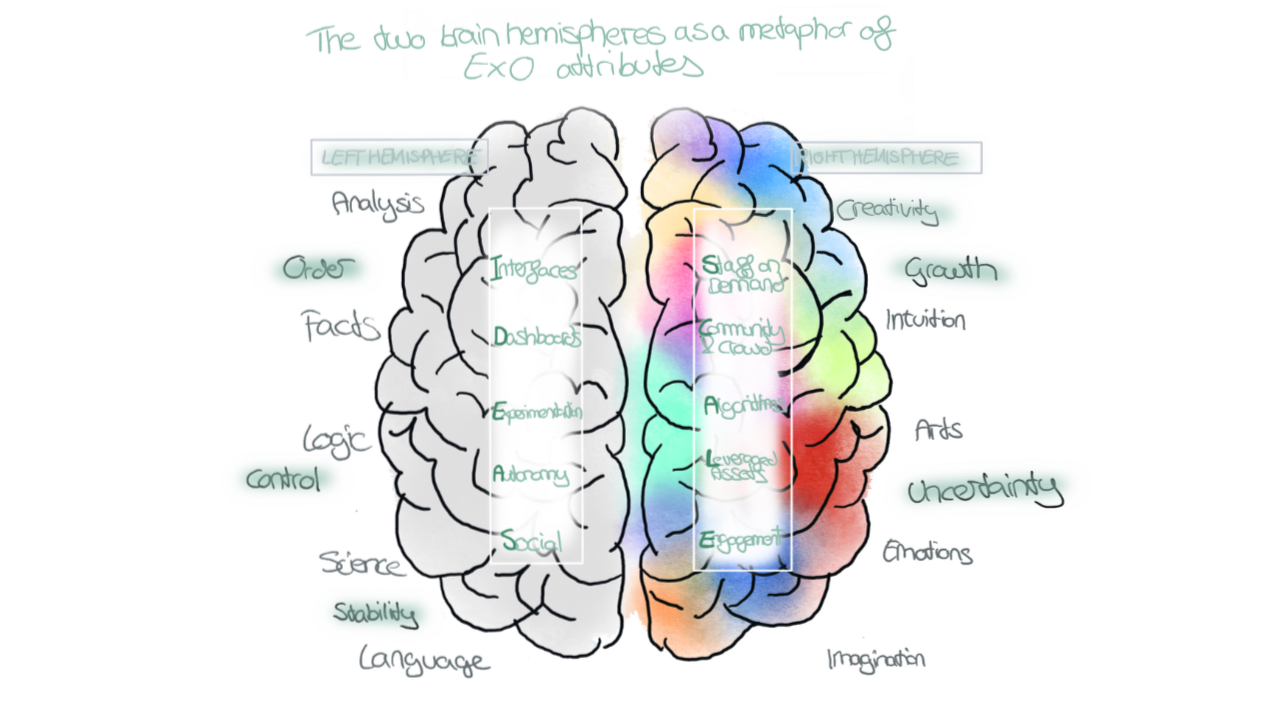 The two brain hemispheres as a metaphor of
ExO attributes
LEFT HEMISPHERE
Analysis
Order
Facts
Logic
Control
Science
Stability
Language
Interfaces
Dashboards
Experimentation
Autonomy
Social
RIGHT HEMISPHERE
Staff on
Demand
Community
& Crowd
Algorithms
Leveraged
Assets
Engagement
Creativity
Growth
Intuition
Arts
Uncertainty
Emotions
Imagination